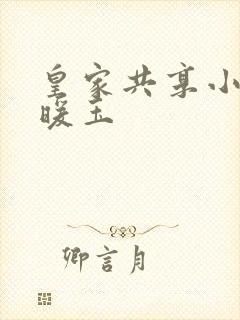 皇家共享小
暖玉
卿言月